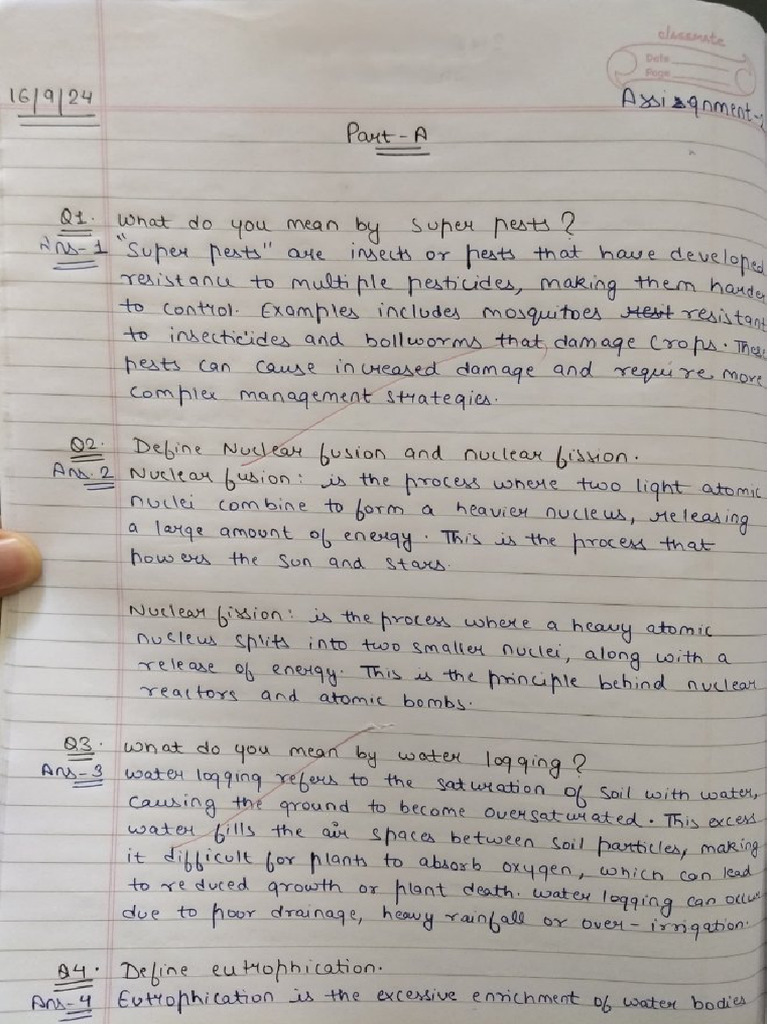 classmate
Date
Page
16/9/24
Assignment-
Part-A
Q1. What do you mean by super pests?
Ans-1 "Super pests" are insects or pests that have developed
resistance to multiple pesticides, making them harder
to control. Examples includes mosquitoes resistant
to insecticides and bollworms that damage crops. These
pests can cause increased damage and require more
complex management strategies.
Q2. Define Nuclear fusion and nuclear fission.
Ans.2 Nuclear fusion: is the process where two light atomic
nuclei combine to form a heavier nucleus, releasing
a large amount of energy. This is the process that
powers the sun and stars.
Nuclear fission: is the process where a heavy atomic
nucleus splits into two smaller nuclei, along with a
release of energy. This is the principle behind nuclear
reactors and atomic bombs.
Q3. What do you mean by water logging?
Ans-3 Water logging refers to the saturation of soil with water,
causing the ground to become oversaturated. This excess
water fills the air spaces between soil particles, making
it difficult for plants to absorb oxygen, which can lead
to reduced growth or plant death. Water logging can occur
due to poor drainage, heavy rainfall or over-irrigation.
Q4. Define eutrophication.
Ans-4 Eutrophication is the excessive enrichment of water bodies